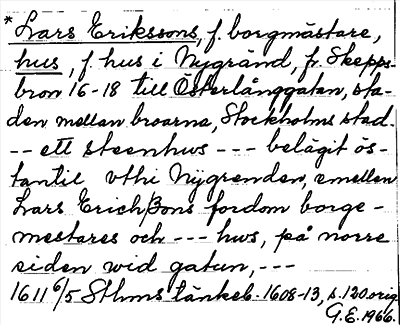 *Lars Erikssons, f. borgmästare,
hus, f. hus i Nygränd, fr. Skepps-
bron 16-18 till Österlånggatan, sta-
den mellan broarna, Stockholms stad.
-- ett steenhws --- belägit ös-
tantil vthi Nygrenden, emellen
Lars Erichßons fordom borge-
mestares och --- hws, på norre
siden wid gatun, ---
1611 6/5 Sthms tänkeb. 1608-13, s. 120 orig
G.E. 1966.